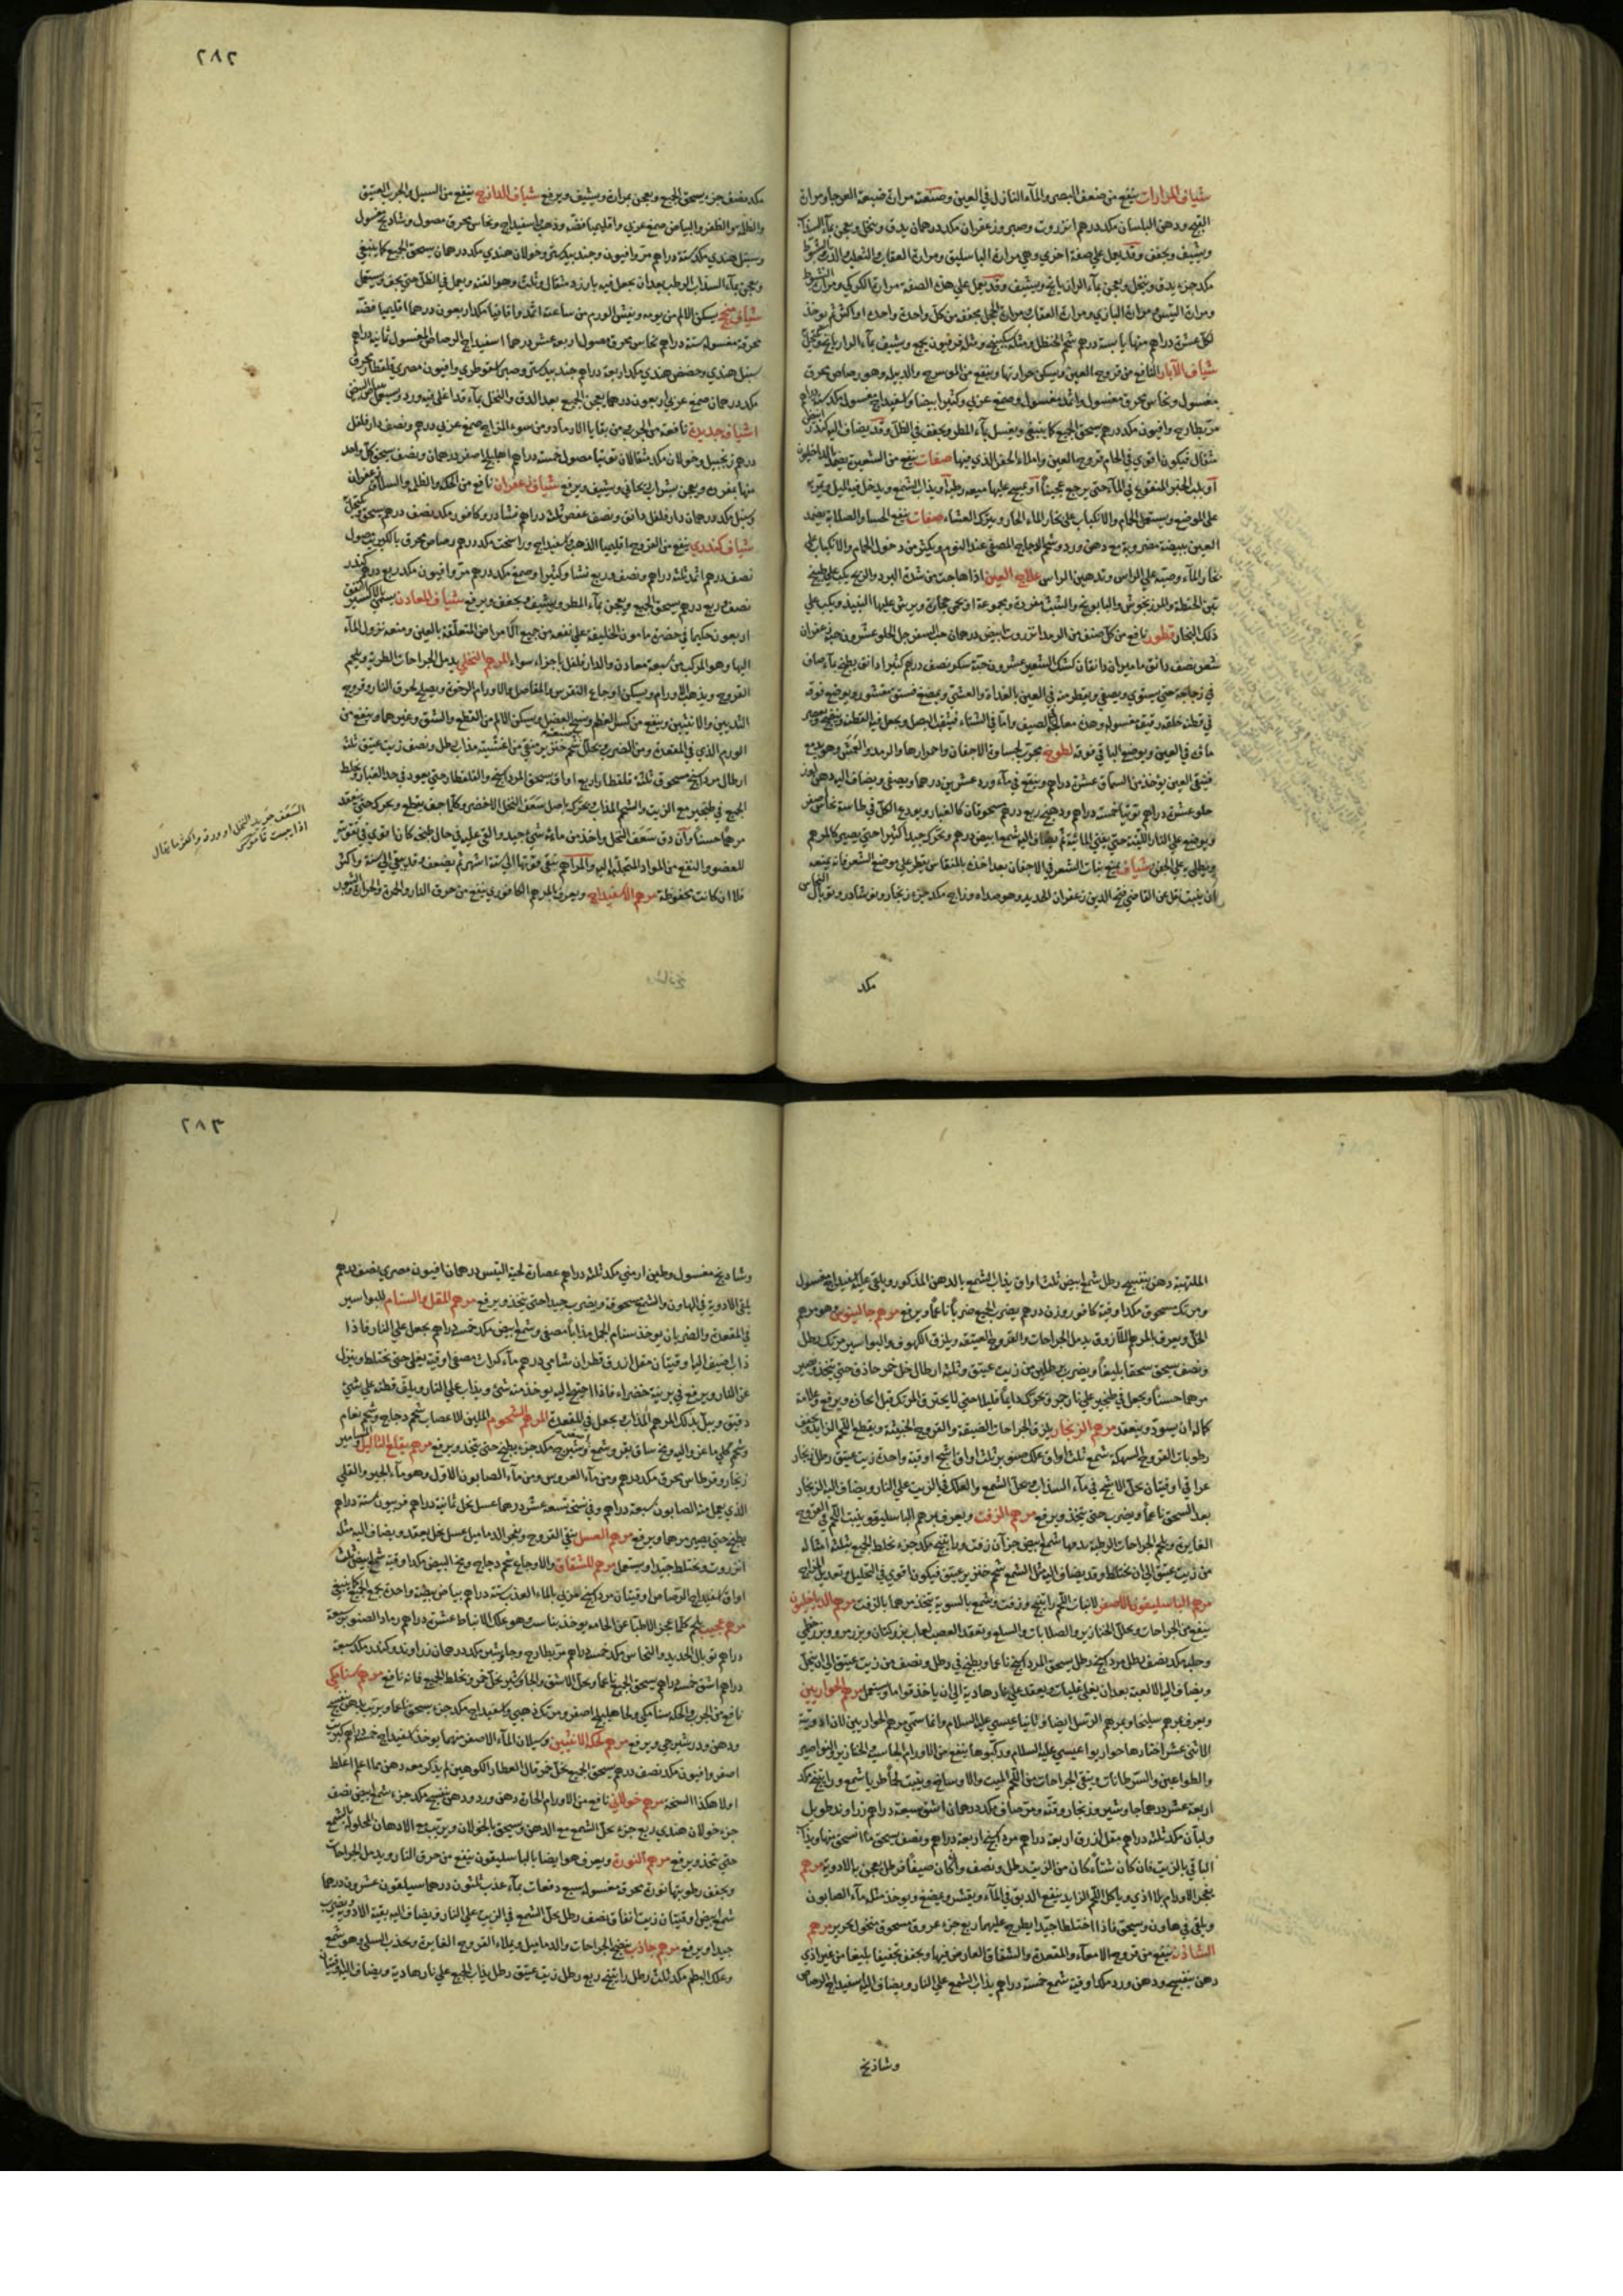 شياف المرارات ينفع من ضعف البصر والمآء النازل في العين وصنعته مرارة ضبعة العرجا ومرارة
القبج ودهن البلسان مكد درهم انزروت وصبر وزعفران مكد درهمان يدق وينخل ويعجن بمآء السذاب
ويشيف ويجفف وقد يعمل علي صفة اخري وهي مرارة الباسليق ومرارة العقاب والثعلب والذئب
مكد جزء يدق وينخل ويعجن بمآء الرازيانج ويشيف وقد يعمل علي هذه الصفة مرارة الكركي ومرارة الشبوط
ومرارة التيس ومرارة البازي ومرارة العقاب ومرارة الحجل يجفف من كل واحدة واحدة او اكثر ثم يوخذ
لكل عشرة دراهم منها يابسة درهم شحم الحنظل ومثله سكبينج ومثله فرفيون يجمع ويشيف بمآء الرازيانج
شياف الآبار النافع من قروح العين ويسكن حرارتها وينفع من الموسرج والدبيلة وهو رصاص محرق
مغسول ونحاس محرق مغسول واثمد مغسول وصمغ عربي وكثيرا بيضا واسفيداج مغسول مكد ستة دراهم
مر بطارخ وافيون مكد درهم يسحق الجميع كما ينبغي ويغسل بمآء المطر ويجفف في الظل وقد يضاف اليه كندر
مثقال فيكون اقوي في الحام قروح العين واملاء الحفر الذي فيها صفات ينفع من الشعيرة
او بلب الخبز المنقوع في المآء حتي يرجع عجيناً او يمسح عليها ميعة رطبة او يذاب الشمع ويدخل فيه الميل ويمر به
علي الموضع ويستعمل الحمام والانكباب علي بخار المآء الحار ويترك العشاء صفات ينفع الجسا والصلابة يضمد
العين ببيضة مضروبة مع دهن ورد وشحم الدجاج المصفي عند النوم ويكثر من دخول الحمام والانكباب علي
بخار المآء وصبه علي الراس وتدهين الراس علاج العين اذا هاجت من شدة البرد والريح يكب علي طبيخ
تبن الحنطة والمرزنجوش والبابونج والشبث مفردة ومجموعة او يحمي حجارة ويرش عليها النبيذ ويكب علي
ذلك البخار قطور نافع من كل صنف من الرمد انزروت ابيض درهمان حب السفرجل الحلو عشرون حبة زعفران
شعر نصف دانق ماميران دانقان كشك الشعير عشرون حبة سكر نصف درهم كثيرا دانق يطبخ بمآء صاف
في زجاجة حتي يستوي ويصفي ويقطر منه في العين بالغداة والعشي ويمضغ فستق مقشور ويوضع فوقه
في قطنة خلقة رقيقة مغسولة وهذه معالجة الصيف واما في الشتاء
ماق في العين ويوضع الباقي فوقه لطوخ مجرب لجساوة الاجفان واحمرارها والرمد والعمش وهو بديع
فيبقي العين يوخذ من السماق عشرة دراهم وينقع في مآء ورد عشرين درهما ويصفي ويضاف اليه دهن لوز
حلو عشرة دراهم توتيا خمسة دراهم ودهنج ربع درهم مسحوقان كالغبار ويودع الكل في طاسة نحاس اصفر
ويوضع علي النار اللينة حتي يفني المائية ثم يضاف اليه شمع ابيض درهم ويحرك جيداً كثيرا حتي يصير كالمرهم
ويطلي به علي الجفن شياف يمنع نبات الشعر في الاجفان بعد اخذه بالمنقاش يقطر علي موضع الشعر فانه يمنعه
ان ينبت نقل عن القاضي فتح الدين زعفران الحديد وهو صداه وزاج مكد جزء زنجار ونوشادر وتوبال النحاس
مكد
٢٨٢
مكد نصف جزء يسحق الجميع ويعجن بمرارة ويشيف ويرفع شياف الدارج ينفع من السبل والجرب العتيق
والظلمة والظفرة والبياض صمغ عربي واقليميا فضة وذهب واسفيداج ونحاس محرق مصول وشادنج مغسول
وسنبل هندي مكد ستة دراهم مر وافيون وجندبيدستر وخولان هندي مكد درهمان يسحق الجميع كما ينبغي
ويعجن بمآء السذاب الرطب بعد ان يجعل فيه بارزد مثقال وثلث وهو القنه ويعمل في الظل حتي يجف ويستعمل
شياف سنج يسكن الالم من يومه ويفش الورم من ساعته اثمد واقاقيا مكد اربعون درهما اقليميا فضة
محرقة مغسولة ستة دراهم نحاس محرق مصول اربعة عشر درهما اسفيداج الرصاص المغسول ثمانية دراهم
سنبل هندي وحضض هندي مكد اربعة دراهم جندبيدستر وصبر اسقوطري وافيون مصري وقلقطار محرق
مكد درهمان صمغ عربي اربعون درهما يعجن الجميع بعد الدق والنخل بمآء قد اغلي فيه ورد ويستعمل
اشياف جديدة نافعة من الجرب من بقايا الارماد ومن سوء المزاج صمغ عربي درهم ونصف دارفلفل
درهم زنجبيل وخولان مكد مثقالان توتيا مصول خمسة دراهم اهليلج اصفر درهمان ونصف يسحق كل واحد
منها بمفرده ويعجن بشراب ريحاني ويشيف ويرفع شياف زعفران نافع من الحكة والظلمة والسلاق زعفران
وسنبل مكد درهمان دارفلفل دانق ونصف عفص ثلثة دراهم نشادر وكافور مكد نصف درهم يسحق وينخل
شياف كندري ينفع من القروح اقليميا الذهب اسفيداج وراسخت مكد درهم رصاص محرق بالكبريت مصول
نصف درهم اثمد ثلثة دراهم ونصف وربع نشا وكثيرا وصمغ مكد درهم مر وافيون مكد ربع درهم كندر
نصف وربع درهم يسحق الجميع ويعجن بمآء المطر ويشيف ويجفف ويرفع شياف المعادن يسمي بالاكسير اتفق
اربعون حكيما في حضرة مامون الخليفة علي نفعه من جميع الامراض المتعلقة بالعين ومنعه نزول المآء
اليها وهو المركب من سبعة معادن والدارفلفل باجزاء سواء المرهم النخلي يدمل الجراحات الطرية ويلحم
القروح ويذهب الاورام ويسكن اوجاع النقرس والمفاصل والاورام الرخوة ويصلح لحرق النار وقروح
الثديين والانثيين وينفع من كسر العظم وفسخ العضل ويسكن الالم من القطع والشق وغيرهما وينفع من
الورم الذي في المقعدة ومن الضربة بحلل شحم خنزير منقي من اغشيته مذاب رطل ونصف زيت عتيق ثلثة
ارطال مرداسنج مسحوق ثلثة قلقطار اربع اواق يسحق المرداسنج والقلقطار حتي يعود في حد الغبار ويخلط
الجميع في طنجير مع الزيت والشحم المذاب يحركه باصل سعف النخل الاخضر وكلما جف يقطع ويحركه حتي ينعقد
مرهماً حسناً وان دق سعف النخل واخذ من مائه شيء جيد والقي عليه في حال طبخه كان اقوي في تقوية
للعضو والنفع من المواد المتجلبة اليه والمراهم تبقي قوتها الي ستة اشهر ثم يضعف وقد يبقي الي سنة واكثر
فلا ان كانت محفوظة مرهم الاسفيداج ويعرف بالمرهم الكافوري ينفع من حرق النار والحمرة والحرارة الشديدة
السعف جريد النخل او ورقه واكثر ما يقال
اذا يبست قاموس
وشادنج
الملتهبة دهن بنفسج رطل شمع ابيض ثلث اواق يذاب الشمع بالدهن المذكور ويلقي عليه اسفيداج مغسول
ومرتك مسحوق مكد اوقية كافور وزن درهم يضرب الجميع ضرباً ناعماً ويرفع مرهم جالينوس وهو مرهم
الخل ويعرف بالمرهم اللازوق يدمل الجراحات والقروح العتيقة ويلزق الكهوف والبواسير مرتك رطل
ونصف يسحق سحقا بليغاً ويضرب برطلين من زيت عتيق وثلثة ارطال خل خمر حاذق حتي يتحد ويصير
مرهما حسناً ويجعل في طنجير علي نار جمر وتحركه دايماً قليلا حتي لا يحترق المرتك قبل انحانه ويرفع وعلامة
كماله ان يسود وينعقد مرهم الزنجار يلزق الجراحات الضيقة والقروح الخبيثة ويقطع اللحم الزايد ويجفف
رطوبات القروح المسهكة شمع ثلث اواق علك صنوبر ثلث اواق اشج اوقية واحدة زيت عتيق رطل زنجار
عراقي اوقيتان يحل الاشج في مآء السذاب ويحل الشمع والعلك في الزيت علي النار ويضاف اليه الزنجار
بعد السحق ناعماً ويضرب حتي يتحد ويرفع مرهم الزفت ويعرف بمرهم الباسليقون ينبت اللحم في القروح
الغايرة ويلحم الجراحات الرطبة بدمها شمع ابيض جزآن زفت وراتينج مكد جزء يخلط الجميع بثلثة امثاله
من زيت عتيق الي ان يختلط وقد يضاف اليه مثل الشمع شحم خنزير عتيق فيكون اقوي في التحليل وتعديل المزاج
مرهم الباسليقون الاصغر لانبات اللحم راتينج وزفت وشمع بالسوية يتخذ مرهما بالزفت مرهم الدياخيلون
ينفع من الجراحات ويحلل الخنازير والصلابات والسلع وتعقد العصب لعاب بزر كتان وبزر مرو وبزر خطمي
وحلبة مكد نصف رطل مرداسنج رطل يسحق المرداسنج ناعما ويطبخ في رطل ونصف من زيت عتيق الي ان ينحل
ويضاف اليه الالعبة بعد ان يغلي غليات ويعقد علي نار هادية الي ان ياخذ قواما ويستعمل مرهم الحواريين
ويعرف بمرهم سليخا وبمرهم الرسل ايضا والبابا عيسي عليه السلام وانما سمي مرهم الحواريين لان ادويته
الاثني عشر اختارها حواريوا عيسي عليه السلام وركبوها ينفع من الاورام الجاسية والخنازير والنواصير
والطواعين والسرطانات وينقي الجراحات من اللحم الميت والاوساخ وينبت لحماً طريا شمع وراتينج مكد
اربعة عشر درهما جاوشير وزنجار وقنه ومر صاف مكد درهمان اشق سبعة دراهم زراوند طويل
ولبان مكد ثلثة دراهم مقل ازرق اربعة دراهم مرداسنج اربعة دراهم ونصف يسحق ما انسحق منها ويذاب
الباقي بالزيت فان كان شتاء كان من الزيت رطل ونصف وان كان صيفا فرطل يعجن بالادوية مرهم
يفجر الاورام بلا اذي وياكل اللحم الزايد ينقع الدبق في المآء ويقشر ويمضغ ويوخذ مثله مآء الصابون
ويلقي في هاون ويسحق فاذا اختلطا جيداً يطرح عليهما ربع جزء عروق مسحوق منخول بحرير مرهم
الشادنه ينفع من قروح الامعآء والمقعدة والشقاق العارض فيها ويجفف تجفيفا بليغا من غير اذي
دهن بنفسج ودهن ورد مكد اوقية شمع خمسة دراهم يذاب الشمع علي النار ويضاف اليه اسفيداج الرصاص
وشادنج
٢٨٣
وشادنج مغسول وطين ارمني مكد ثلثة دراهم عصارة لحية التيس درهمان افيون مصري نصف درهم
يلقي الادوية في الهاون والشمع مسحوقة ويضرب جيدا حتي يتحد ويرفع مرهم المقل والسنام للبواسير
في المقعدة والضربان يوخذ سنام الجمل مذاباً مصفي وشمع ابيض مكد خمسة دراهم يجعل علي النار فاذا
ذاب اضيف اليه اوقيتان مقل ازرق قطران شامي درهم مآء كراث مصفي اوقية يغلي حتي يختلط وينزل
عن النار ويرفع في برنية خضراء فاذا احتيج اليه يوخذ منه شئ ويذاب علي النار ويلف قطنة علي شئ
دقيق ويبل بذلك المرهم المذاب ويجعل في المقعدة المرهم الشحوم الملين للاعصاب شحم دجاج وشحم نعام
وشحم كلي ماعز والية ومخ ساق بقر وشمع وشيرج مكد جزء يطبخ حتي يتحد ويرفع مرهم يقلع الثآليل والمسامير
زنجار وقرطاس محرق مكد درهم ومن مآء العروس ومن مآء الصابون الاول وهو مآء الجير والقلي
الذي يعمل منه الصابون سبعة دراهم وفي نسخة تسعة عشر درهما عسل نحل ثمانية دراهم فربيون ستة دراهم
يطبخ حتي يصير مرهما ويرفع مرهم العسل ينقي القروح ويفجر الدماميل عسل نحل يعقد ويضاف اليه مثله
انزروت ويختلط جيدا ويستعمل مرهم للشقاق والاوجاع شحم دجاج ومخ البيض مكد اوقية شمع ابيض ثلث
اواق اسفيداج الرصاص اوقيتان مرداسنج عربي بالمآء العذب ستة دراهم بياض بيضة واحدة يجمع الجميع كما ينبغي
مرهم عجيب يلحم كلما يعجز الاطبا عن الحامه يوخذ بناست وهو علك الانباط عشرة دراهم رماد الصنوبر سبعة
دراهم توبال الحديد والنحاس مكد خمسة دراهم مر بطارخ وجاوشير مكد درهمان زراوند وكندر مكد سبعة
دراهم اشق خمسة دراهم يسحق الجميع ناعما ويحل الاشق والجاوشير بخل خمر ويخلط الجميع فانه نافع مرهم سنامكي
نافع من الجرب والحكة سنامكي ولحا هليلج اصفر ومرتك ذهبي واسفيداج مكد جزء يسحق ناعما ويربب بدهن بنفسج
ودهن ورد شيرجي ويرفع مرهم لحكة الانثيين وسيلان المآء الاصفر منهما يوخذ اسفيداج خمسة دراهم كبريت
اصفر وافيون مكد نصف درهم يسحق الجميع بخل خمر قال العطار الكوهين لم يذكر معه دهن فما اعلم اغلط
اولا هكذا النسخة مرهم خولاني نافع من الاورام الحارة دهن ورد ودهن بنفسج مكد جزء شمع ابيض نصف
جزء خولان هندي ربع جزء يحل الشمع مع الدهن ويسحق الخولان ويربب مع الادهان المحلولة بالشمع
حتي يتحد ويرفع مرهم النورة ويعرف هو ايضا بالباسليقون ينفع من حرق النار ويدمل الجراحات
ويجفف رطوبتها نورة محرقة مغسولة سبع دفعات بمآء عذب ثلثون درهما سيلقون عشرون درهما
شمع ابيض اوقيتان زيت انفاق نصف رطل يحل الشمع في الزيت علي النار ويضاف اليه بقية الادوية ويضرب
جيدا ويرفع مرهم جاذب ينضج الجراحات والدماميل ويملاء القروح الغايرة ويجذب السلي وهو شمع
وعلك البطم مكد ثلث رطل راتينج ربع رطل زيت عتيق رطل يذاب الجميع علي نار هادية ويضاف اليه اوقيتان